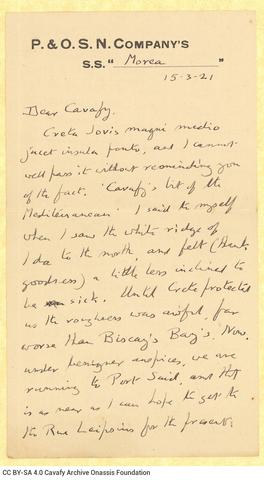 P. & O. S. N. COMPANY'S
S.S. " Morea "
15-3-21
Dear Cavafy.
Creta Jovis magni medio
jacet insula ponto, and I cannot
well pass it without reminding you
of the fact. 'Cavafy's bit of the
Mediterranean' I said to myself
when I saw the white ridge of
Ida to the north, and felt (thank
goodness) a little less inclined to
be sick. Until Crete protected
us the roughness was awful, far
worse than Biscay's Bay's. Now,
under benigner auspices, we are
running to Port Said, and that
is as near as I can hope to get to
the Rue Lepsius for the present.
CC BY-SA 4.0 Cavafy Archive Onassis Foundation